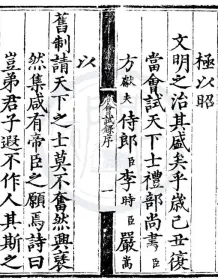 極以昭
文明之治其盛矣乎歲己丑復
當會試天下士禮部尚書臣
方獻夫侍郎臣李時臣嚴嵩
會試錄序
一
以
舊制請天下之士莫不奮然興褎
然集咸有帝臣之願焉詩曰
豈弟君子遐不作人其斯之